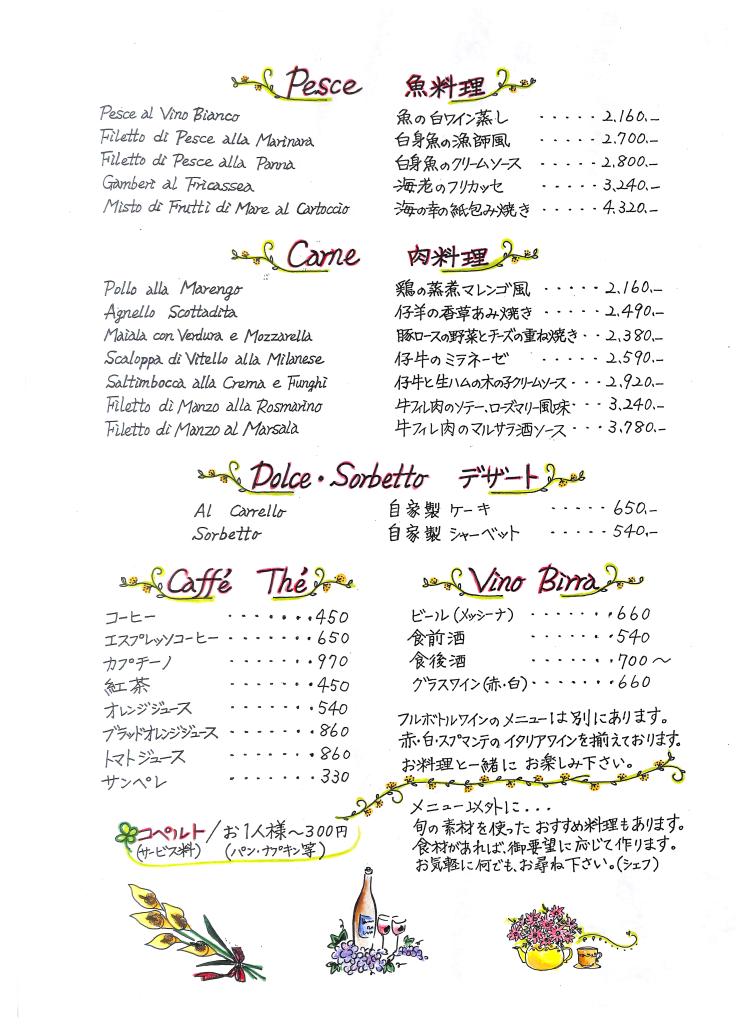 Pesce 魚料理
Pesce al Vino Bianco 魚の白ワイン蒸し ・・・・・2,160.-
Filetto di Pesce alla Marinara 白身魚の漁師風 ・・・・・2,700.-
Filetto di Pesce alla Panna 白身魚のクリームソース ・・・・2,800.-
Gamberi al Fricassea 海老のフリカッセ ・・・・・3,240.-
Misto di Frutti di Mare al Cartoccio 海の幸の紙包み焼き ・・・・4,320.-
Carne 肉料理
Pollo alla Marengo 鶏の蒸煮マレンゴ風 ・・・・・2,160.-
Agnello Scottadita 仔羊の香草あみ焼き ・・・・・2,490.-
Maiala con Verdura e Mozzarella 豚ロースの野菜とチーズの重ね焼き・・2,380.-
Scaloppa di Vitello alla Milanese 仔牛のミラネーゼ ・・・・・2,590.-
Saltimbocca alla Crema e Funghi 仔牛と生ハムの木の子クリームソース・・・2,920.-
Filetto di Manzo alla Rosmarino 牛フィレ肉のソテー、ローズマリー風味・・・3,240.-
Filetto di Manzo al Marsala 牛フィレ肉のマルサラ酒ソース・・・3,780.-
Dolce・Sorbetto デザート
Al Carrello 自家製 ケーキ ・・・・・650.-
Sorbetto 自家製 シャーベット ・・・・・540.-
Caffé Thé
コーヒー ・・・・・・・450
エスプレッソコーヒー・・・・・・・650
カプチーノ ・・・・・・・970
紅茶 ・・・・・・・450
オレンジジュース ・・・・・・・540
ブラッドオレンジジュース・・・・・・・860
トマトジュース ・・・・・・・860
サンペレ ・・・・・・・330
コペルト/お1人様〜300円
(サービス料) (パン・ナプキン等)
Vino Birra
ビール(メッシーナ) ・・・・・・・660
食前酒 ・・・・・・・540
食後酒 ・・・・・・・700〜
グラスワイン(赤・白)・・・・・・・660
フルボトルワインのメニューは別にあります。
赤・白・スプマンテのイタリアワインを揃えております。
お料理と一緒に お楽しみ下さい。
メニュー以外に...
旬の素材を使った おすすめ料理もあります。
食材があれば、御要望に応じて作ります。
お気軽に何でも、お尋ね下さい。(シェフ)